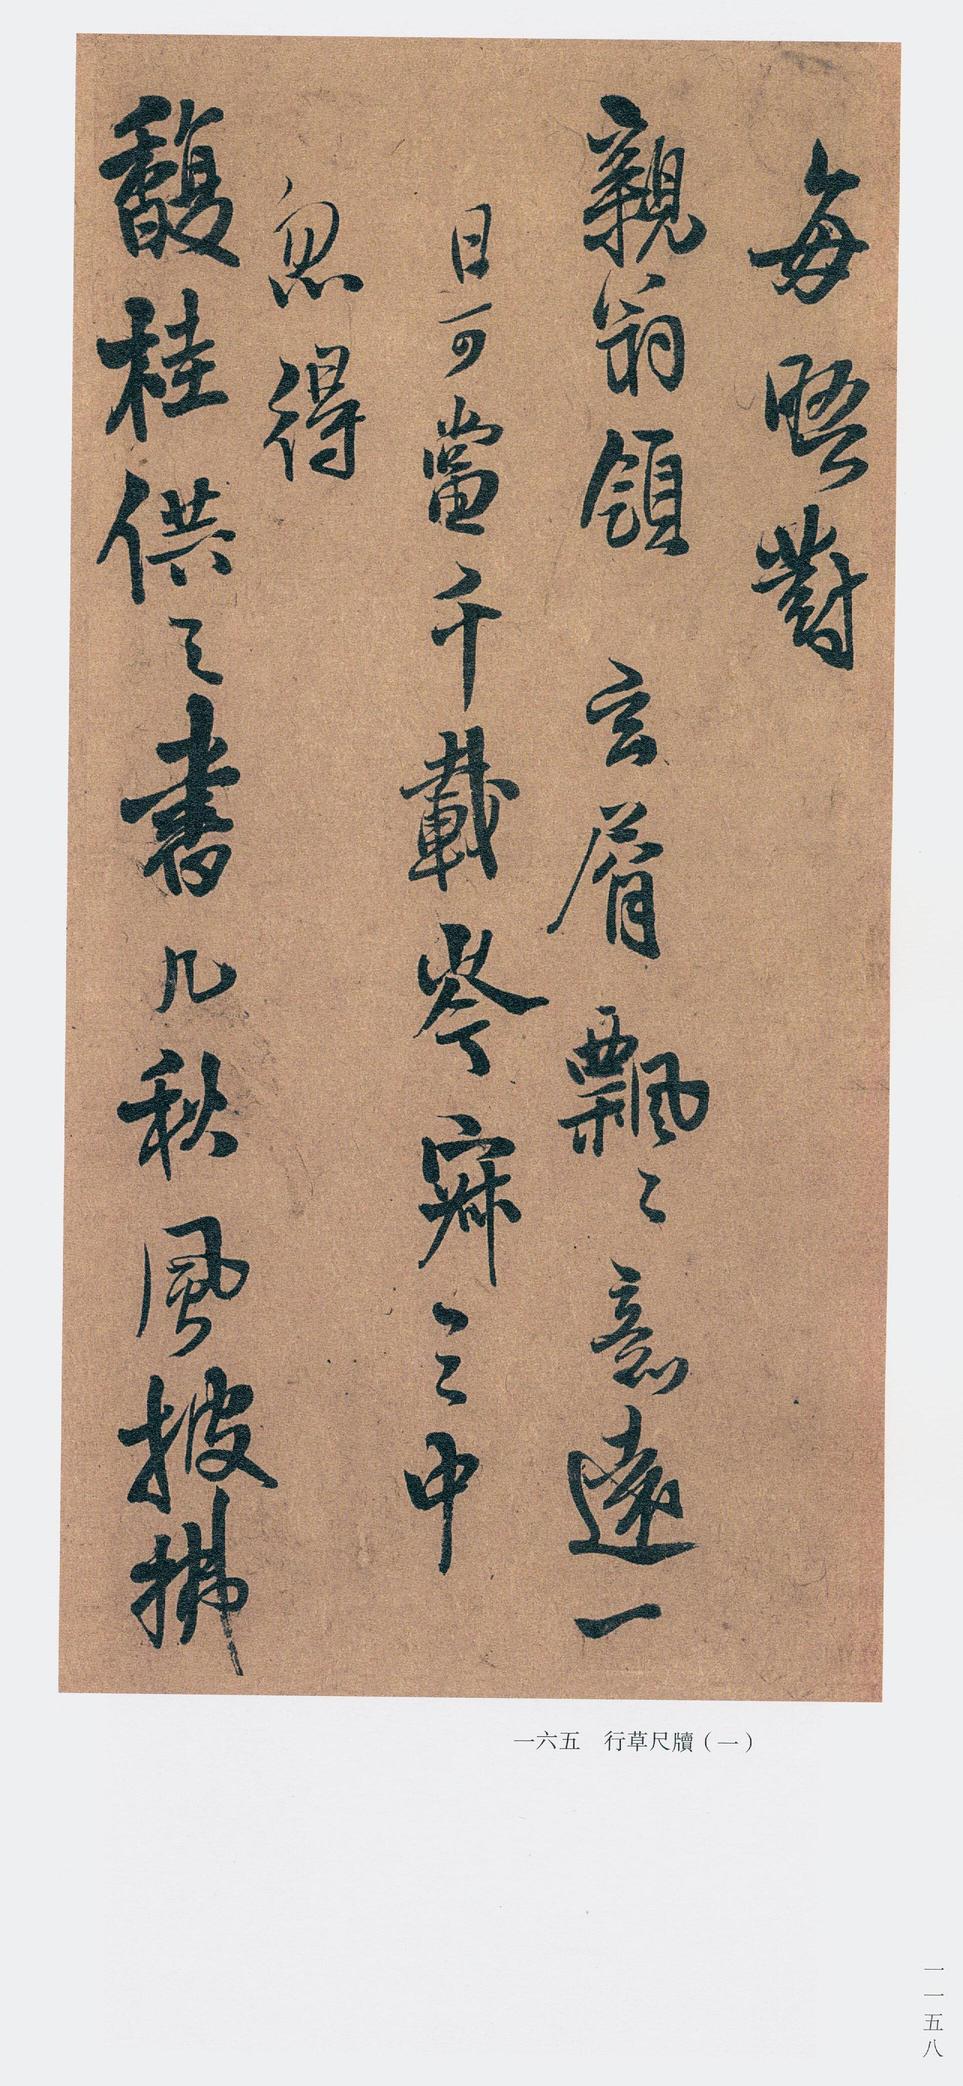 每晤對
親翁領玄屑飄々意遠一
日可當千載岑寂々々中
忽得
馥桂供之書几秋風披拂
一六五 行草尺牘（一）
一一五八